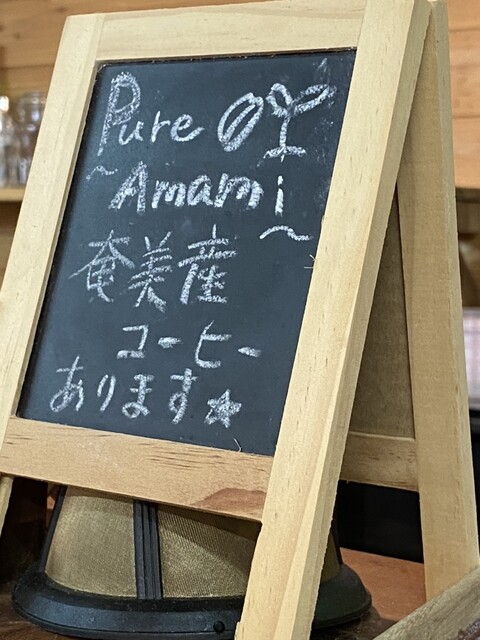 Pure
~Amami~
奄美産
コーヒー
あります☆